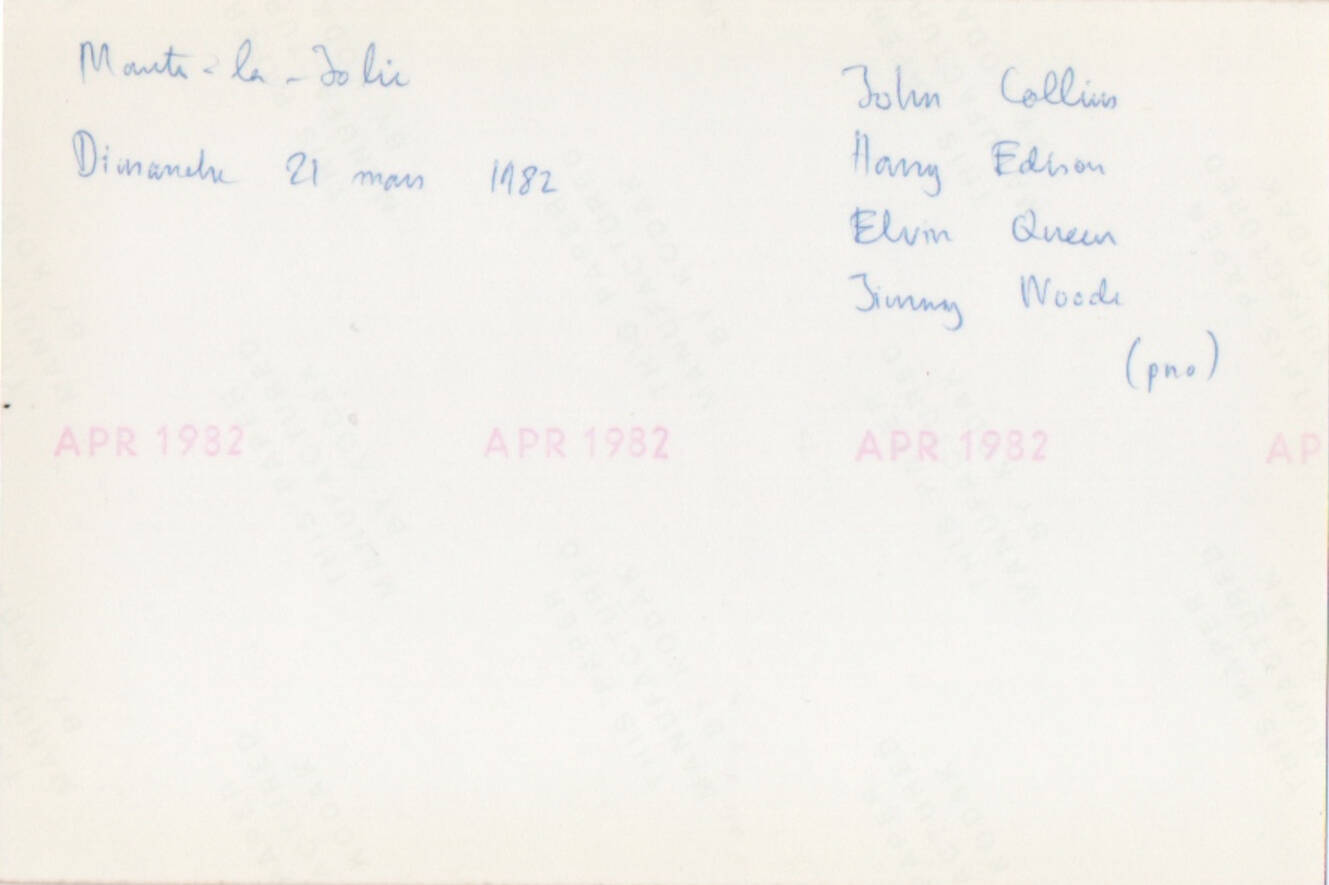 Mantes-la-Jolie
Dimanche 21 mars 1982
John Collins
Harry Edison
Elvin Queen
Jimmy Woode
(pno)
APR 1982 APR 1982 APR 1982 AP
THIS PAPER
MANUFACTURED
BY KODAK